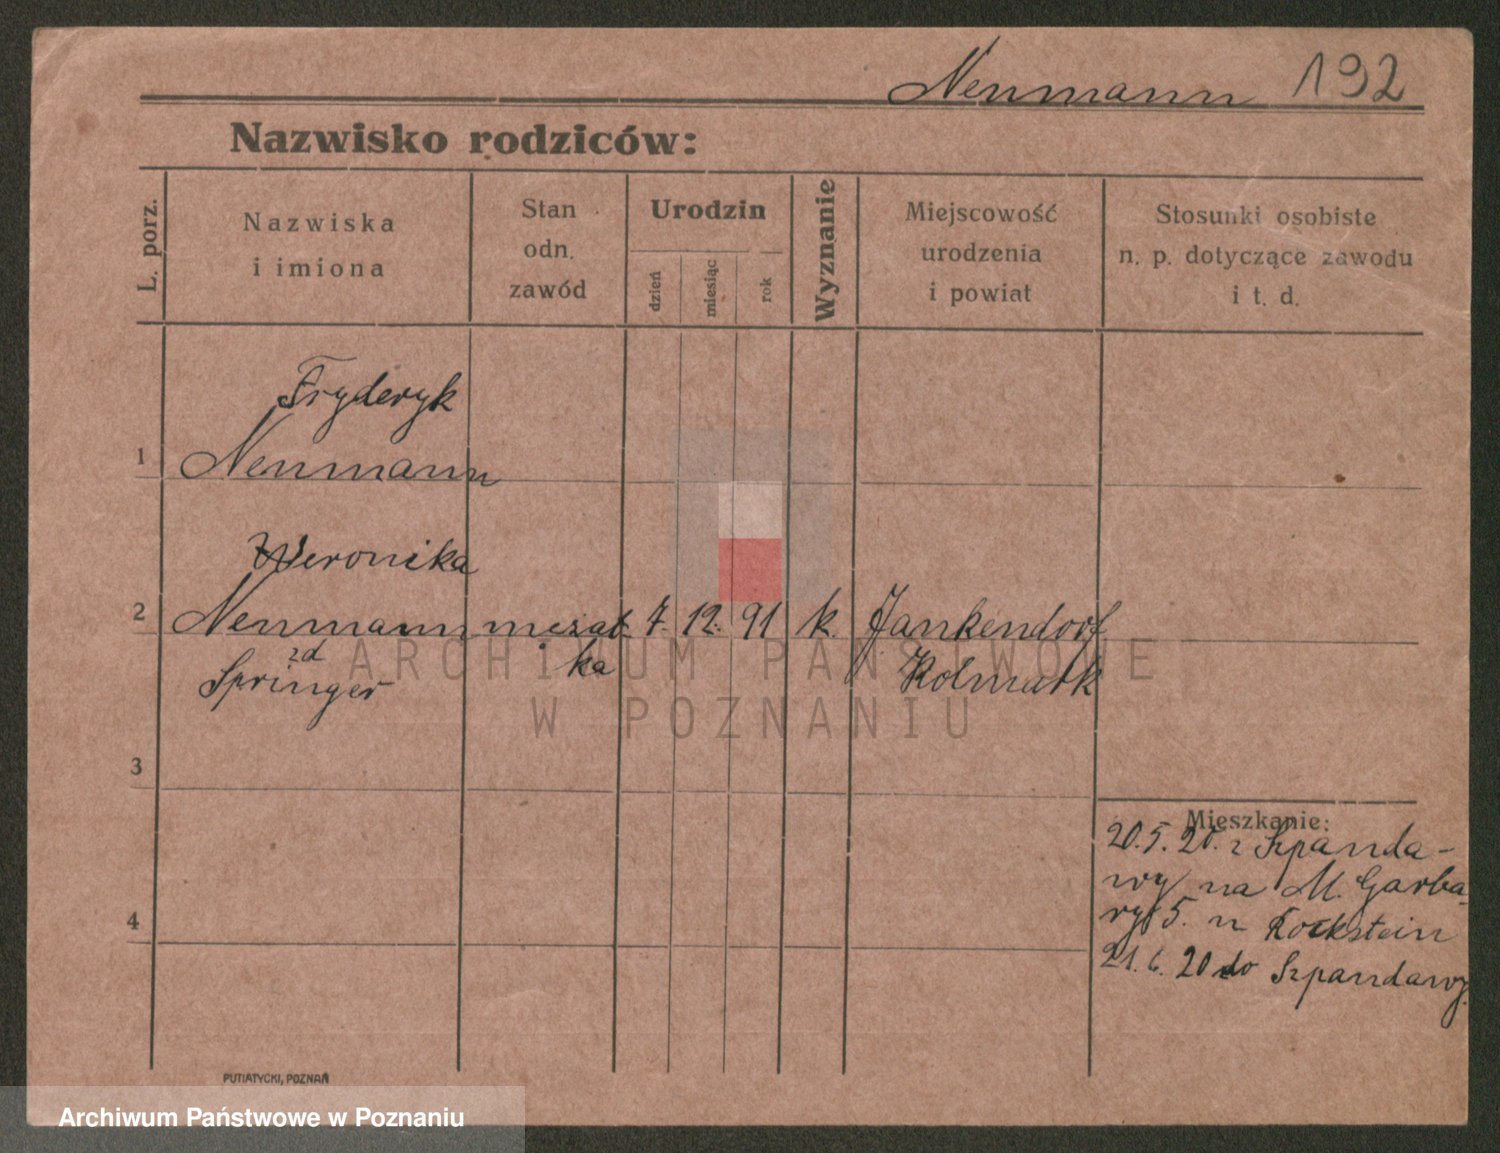 Neumann 192
Nazwisko rodziców:
L. porz.
Nazwiska
i imiona
Stan
odn.
zawód
Urodzin
dzień
miesiąc
rok
Wyznanie
Miejscowość
urodzenia
i powiat
Stosunki osobiste
n. p. dotyczące zawodu
i t. d.
Fryderyk
1 Neumann
Weronika
2 Neumann mężat- 7. 12. 91 k. Jankendorf
zd ka Kolmark
Springer
ARCHIWUM PAŃSTWOWE
W POZNANIU
3
Mieszkanie:
20.5.20. z Szpanda-
wy na M. Garba-
4 ry 5. u Rockstein
21.6.20 do Szpandawy.
PUTIATYCKI, POZNAŃ
Archiwum Państwowe w Poznaniu